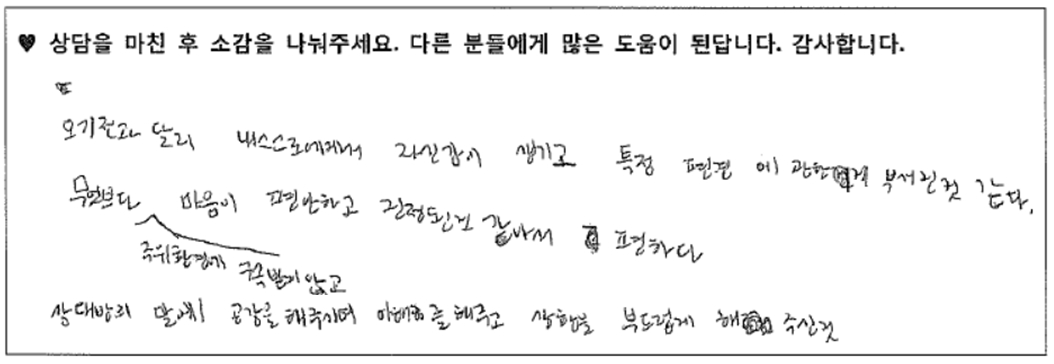 ♥ 상담을 마친 후 소감을 나눠주세요. 다른 분들에게 많은 도움이 된답니다. 감사합니다.
오기전과 달리 내스스로에게서 자신감이 생기고 특정 편견 에 관한 부서진것 같다.
무엇보다 마음이 편안하고 진정되는것 같아서 편하다
주위환경에 받지 않고
상대방의 말에 공감을 해주시며 이해를 해주고 상황을 부드럽게 해 주신것